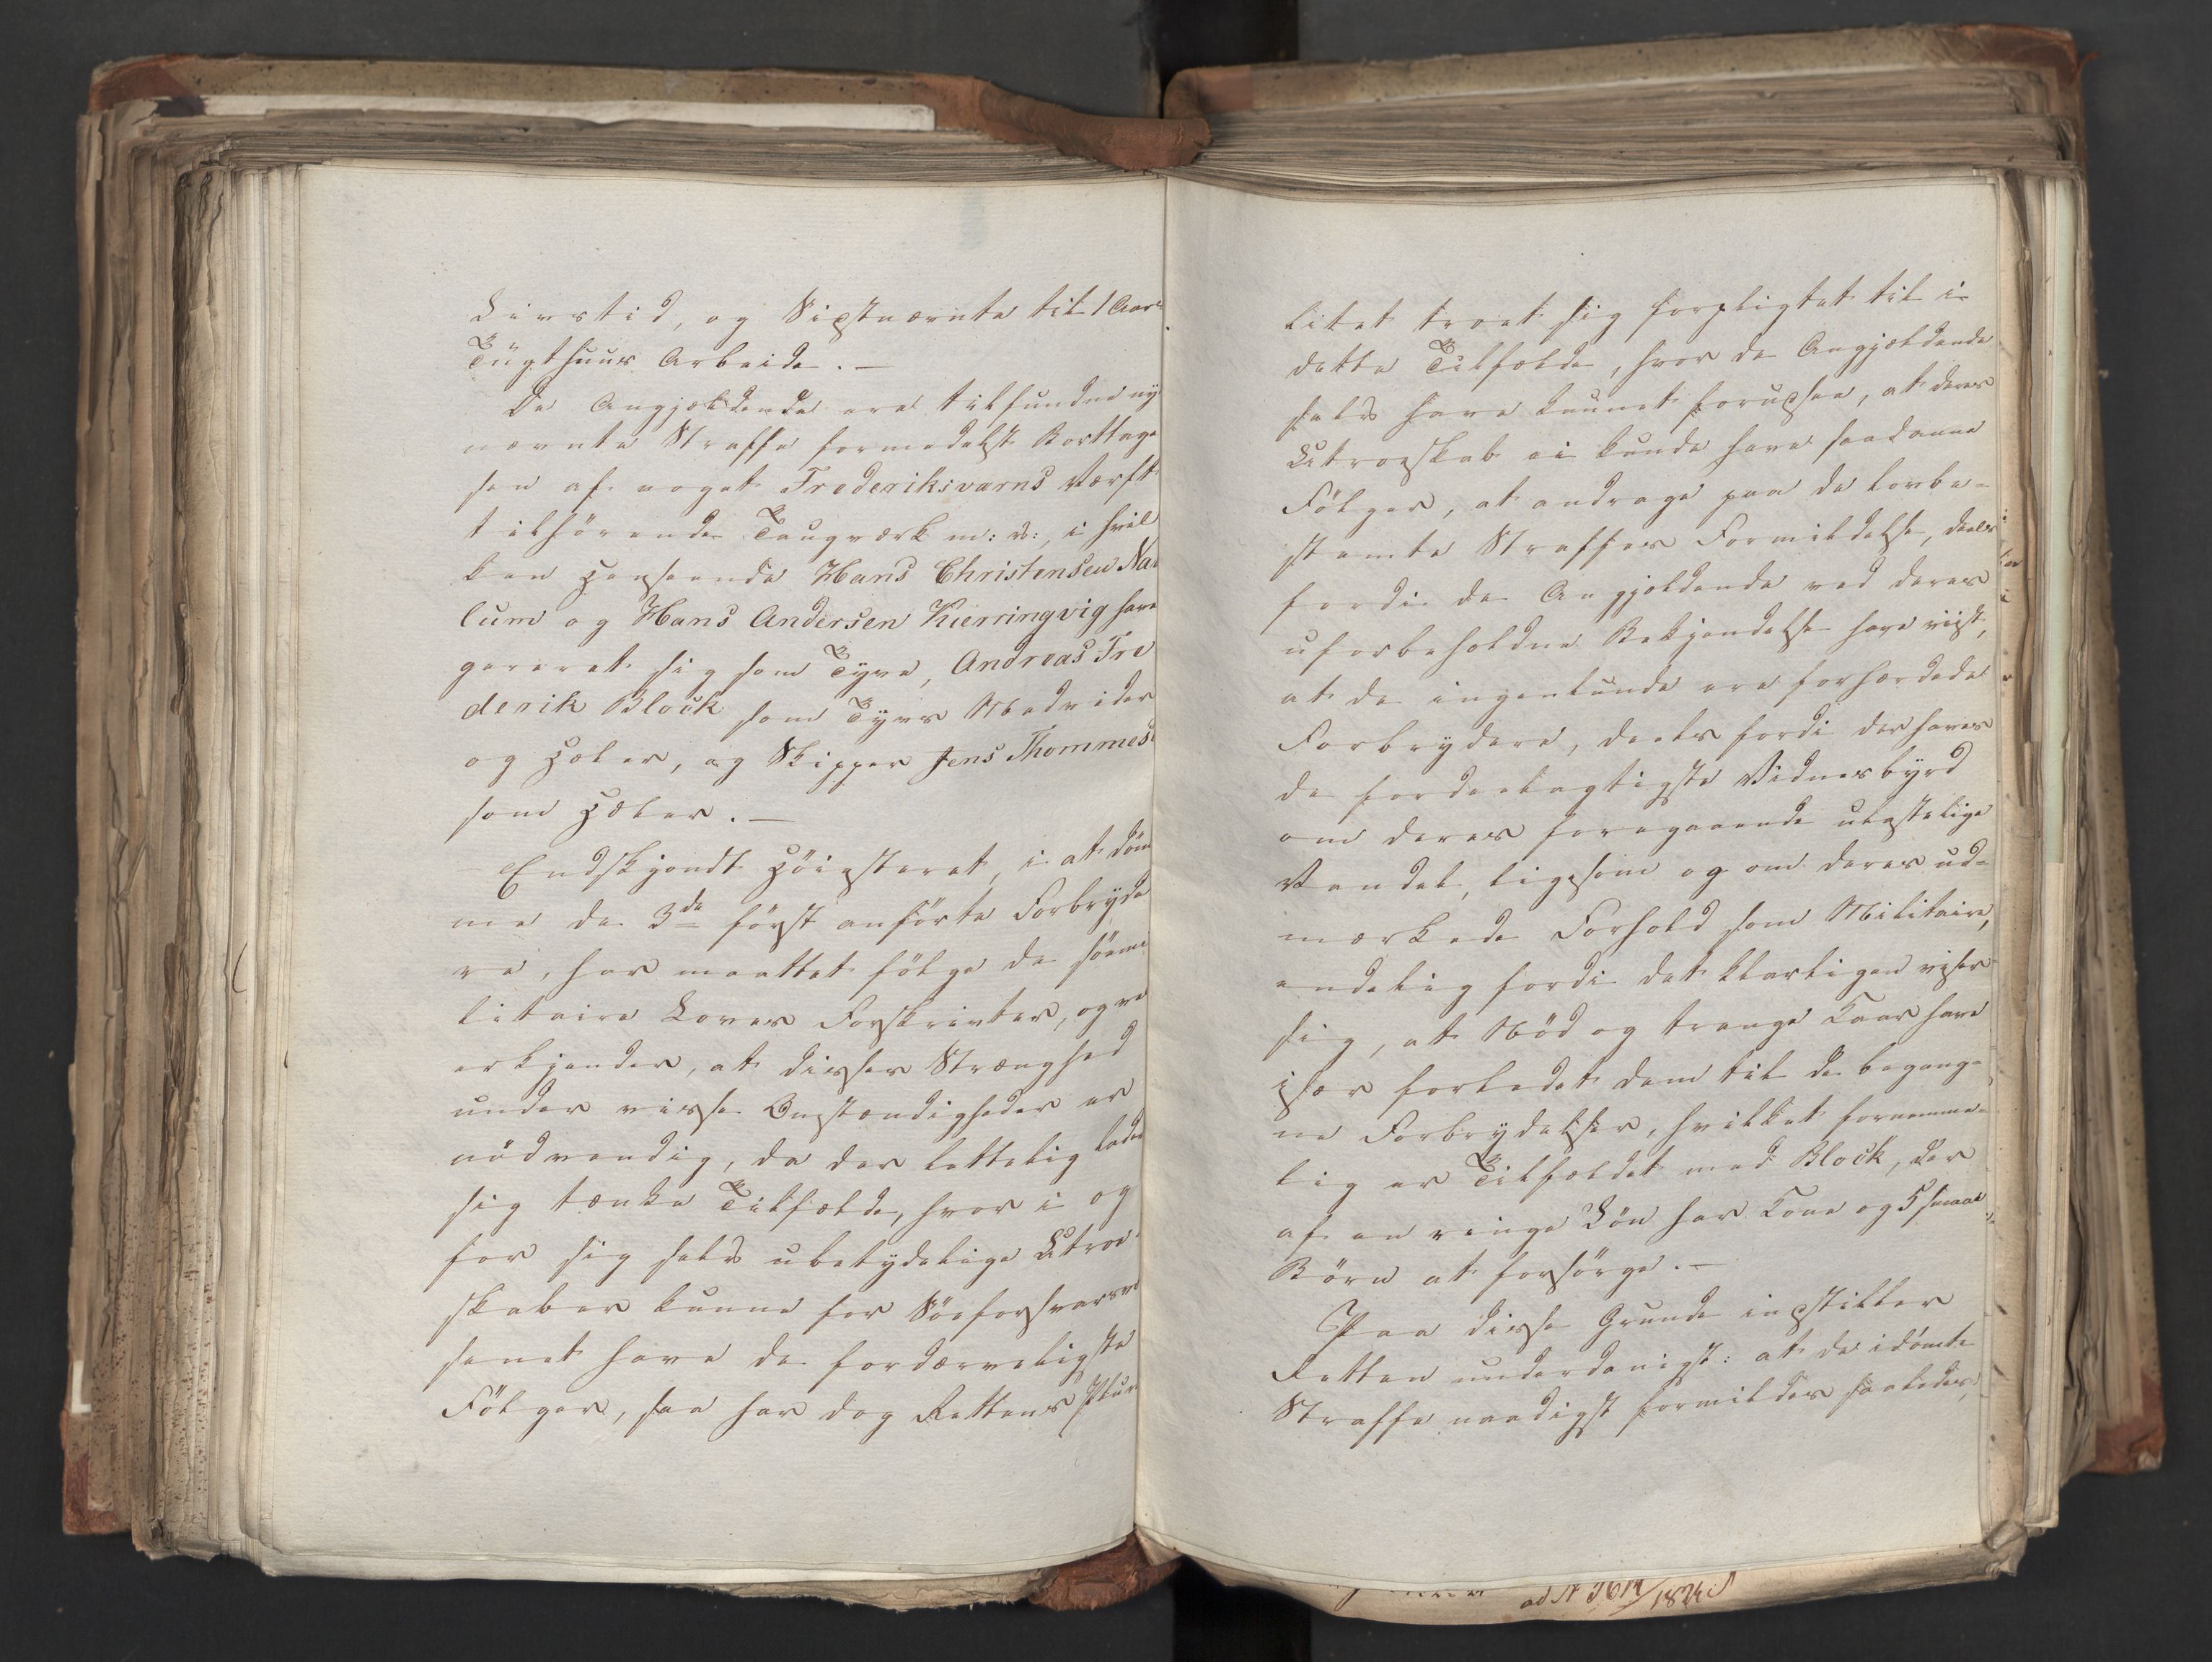 Livstid, og Sidstnævnte til 1 Aars
Tügthuus Arbeide. —
De Angjældende ere tilfundne ny
nævnte Straffe formedelst Borttagel
sen af noget Frederiksværns Værft
tilhörende Taugværk m: v:, i hvil
ken Henseende Hans Christensen Na
lum og Hans Andersen Kierringvig have
gereret sig som Tyve, Andreas Fre
derik Block som Tyvs Medvider
og Hæler, og Skipper Jens Thommes
som Hæler. —
Endskjöndt Höiesteret, i at döm
me de 3de först anförte Forbryde
re, har maattet fölge de söemi
litaire Loves Forskrivter, og ve
erkjender, at disses Strænghed
under visse Omstændigheder er
nödvendig, da der lettelig lade
sig tænke Tilfælde, hvor i og
for sig selv ubetydelige Utroe
skaber kunne for Söeforsvarsve
senet have de fordærveligste
Fölger, saa har dog Rettens Plura
litet troet sig forpligtet til i
dette Tilfælde, hvor de Angjældende
selv have kunnet forudsee, at deres
Utroeskab ei kunde have saadanne
Fölger, at andrage paa de lovbe-
stemte Straffes Formildelse, deels
fordi de Angjældende ved deres
uforbeholdne Bekjendelse have viist,
at de ingenlunde ere forhærdede
Forbrydere, deels fordi der haves
de fordeelagtigste Vidnesbyrd
om deres foregaaende ulastelige
Vandel, ligesom og om deres ud-
mærkede Forhold som Militaire,
endelig fordi det klarligen viser
sig, at Nöd og trange Kaar have
især forledet dem til de begang-
ne Forbrydelser, hvilket fornemme-
lig er Tilfældet med Block, der
af en ringe Lön har Kone og 5 smaae
Börn at forsörge. —
Paa disse Grunde indstiller
Retten underdanigst: at de idömte
Straffe naadigst formildes saaledes,
ad N 3614/1824